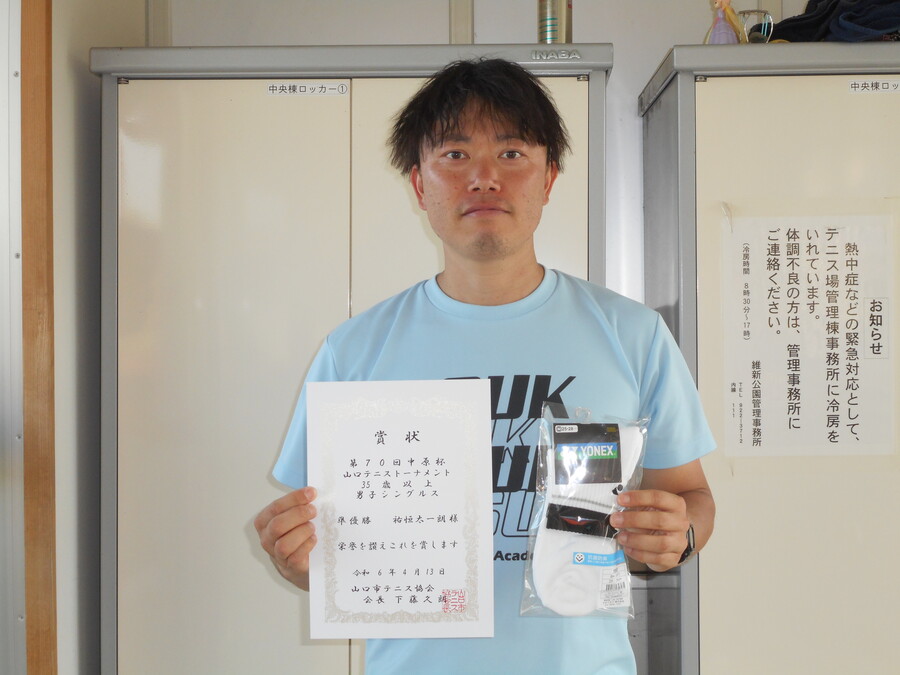 INABA
中央棟ロッカー①
中央棟ロッ
賞状
第70回中原杯
山口テニストーナメント
35歳以上
男子シングルス
準優勝 祐恒太一朗様
栄誉を讃えこれを賞します
令和6年4月13日
山口市テニス協会
会長 下藤久朗
YONEX
Acade
お知らせ
熱中症などの緊急対応として、
テニス場管理棟事務所に冷房を
いれています。
体調不良の方は、管理事務所に
ご連絡ください。
(冷房時間 8時30分~17時)
維新公園管理事務所
内線 111